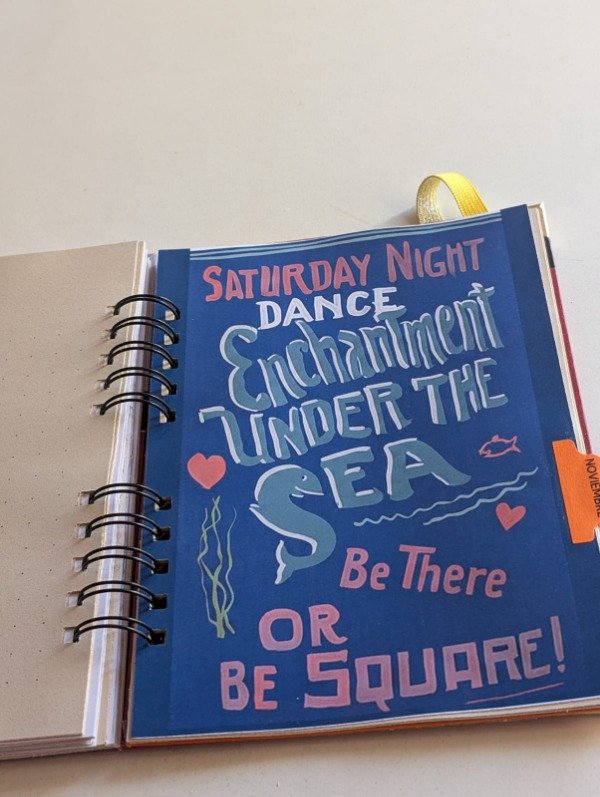 SATURDAY NIGHT
DANCE
Enchantment
UNDER THE
SEA
Be There
OR
BE SQUARE!
NOVIEMBRE